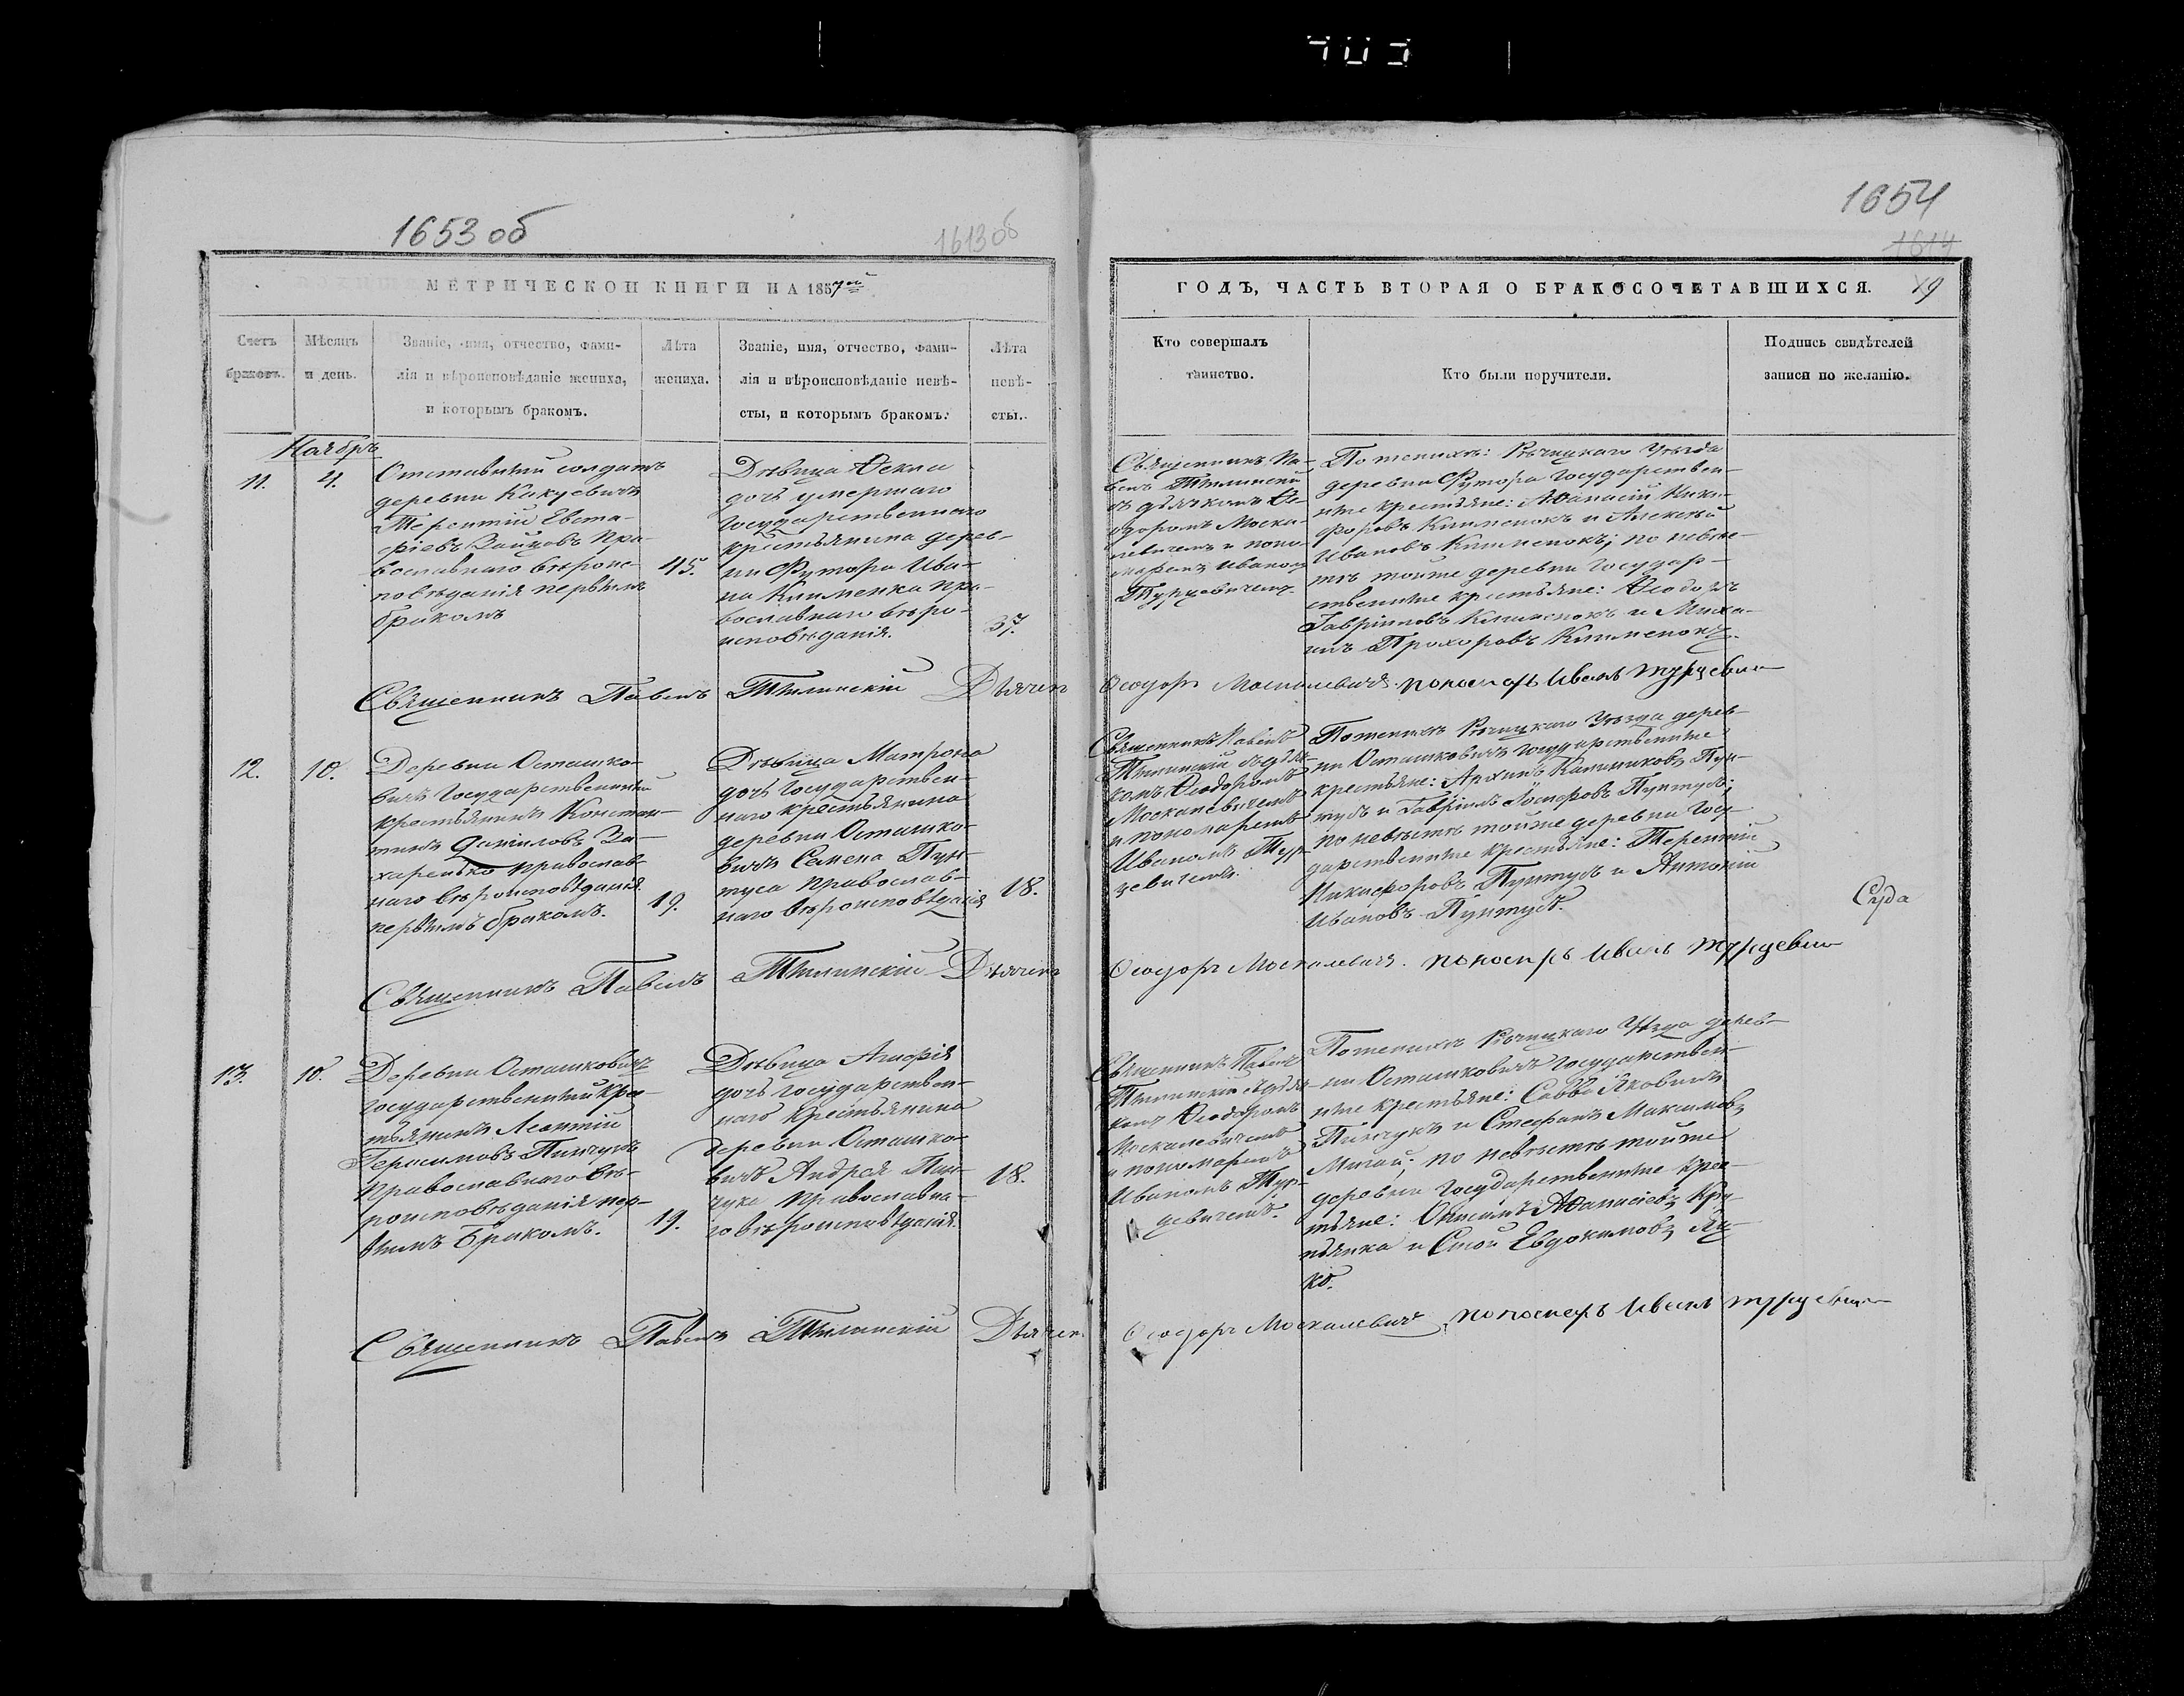 1653 об
1613 об
МЕТРИЧЕСКОЙ КНИГИ НА 1857ой
Счетъ браковъ.
Мѣсяцъ и день.
Званіе, имя, отчество, фами-
лія и вѣроисповѣданіе жениха,
и которымъ бракомъ.
Лѣта
жениха.
Званіе, имя, отчество, фами-
лія и вѣроисповѣданіе невѣ-
сты, и которымъ бракомъ.
Лѣта
невѣ-
сты.
Ноябрь
11.
4.
Отставный солдатъ
деревни Какуевичъ
Терентій Евста-
фіевъ Зайцовъ пра-
вославнаго вѣроис-
повѣданія первымъ
бракомъ
45.
Дѣвица Ѳекла
дочь умершаго
Государственнаго
крестьянина дерев-
ни Футора Ива-
на Клименка пра-
вославнаго вѣро-
исповѣданія.
37.
Священникъ Павелъ Тылинскій Дьячекъ
12.
10.
Деревни Осташко-
вичъ Государственный
крестьянинъ Констан-
тинъ Даниловъ За-
харенько православ-
наго вѣроисповѣданія
первымъ бракомъ.
19.
Дѣвица Матрона
дочь Государствен-
наго крестьянина
деревни Осташко-
вичъ Семена Пун-
туса православ-
наго вѣроисповѣданія
18.
Священникъ Павелъ Тылинскій Дьячекъ
13.
10.
Деревни Осташковичъ
Государственный кре-
стьянинъ Леонтій
Герасимовъ Пинчукъ
православнаго вѣ-
роисповѣданія пер-
вымъ бракомъ.
19.
Дѣвица Агафія
дочь Государствен-
наго крестьянина
деревни Осташко-
вичъ Андрея Пин-
чука православна-
го вѣроисповѣданія.
18.
Священникъ Павелъ Тылинскій Дьячекъ
1654
1614
ГОДЪ, ЧАСТЬ ВТОРАЯ О БРАКОСОЧЕТАВШИХСЯ.
19
Кто совершалъ
таинство.
Кто были поручители.
Подпись свидѣтелей
записи по желанію.
Священникъ Па-
велъ Тылинскій
съ дьячкомъ Ѳе-
одоромъ Моска-
левичемъ и поно-
маремъ Иваномъ
Турцевичемъ.
По женихѣ: Рѣчицкаго Уѣзда
деревни Футора Государствен-
ные крестьяне: Аѳанасій Ники-
форовъ Клименокъ и Алексѣй
Ивановъ Клименокъ; по невѣс-
тѣ тойже деревни Государ-
ственные крестьяне: Ѳеодоръ
Гавріиловъ Клименокъ и Миха-
илъ Прохоровъ Клименокъ.
Ѳеодоръ Москалевичъ. пономарь Иванъ Турцевич
Священникъ Павелъ
Тылинскій съ дьяч-
комъ Ѳеодоромъ
Москалевичемъ
и пономаремъ
Иваномъ Тур-
цевичемъ.
По женихѣ Рѣчицкаго Уѣзда дерев-
ни Осташковичъ Государственные
крестьяне: Архипъ Пун-
тусъ и Гавріилъ Іосифовъ Пунтусъ;
по невѣстѣ тойже деревни Госу-
дарственные крестьяне: Терентій
Никифоровъ Пунтусъ и Антоній
Ивановъ Пунтусъ.
Суда
Ѳеодоръ Москалевичъ. пономарь Иванъ Турцевич
Священникъ Павелъ
Тылинскій съ дьяч-
комъ Ѳеодоромъ
Москалевичемъ
и пономаремъ
Иваномъ Тур-
цевичемъ.
По женихѣ Рѣчицкаго Уѣзда дерев-
ни Осташковичъ Государствен-
ные крестьяне: Савва Яковлевъ
Пинчукъ и Стефанъ Максимовъ
по невѣстѣ тойже
деревни Государственные крес-
тьяне: Онисимъ Аѳанасіевъ
и Евдокимовъ
ко.
Ѳеодоръ Москалевичъ, пономарь Иванъ Турцевич